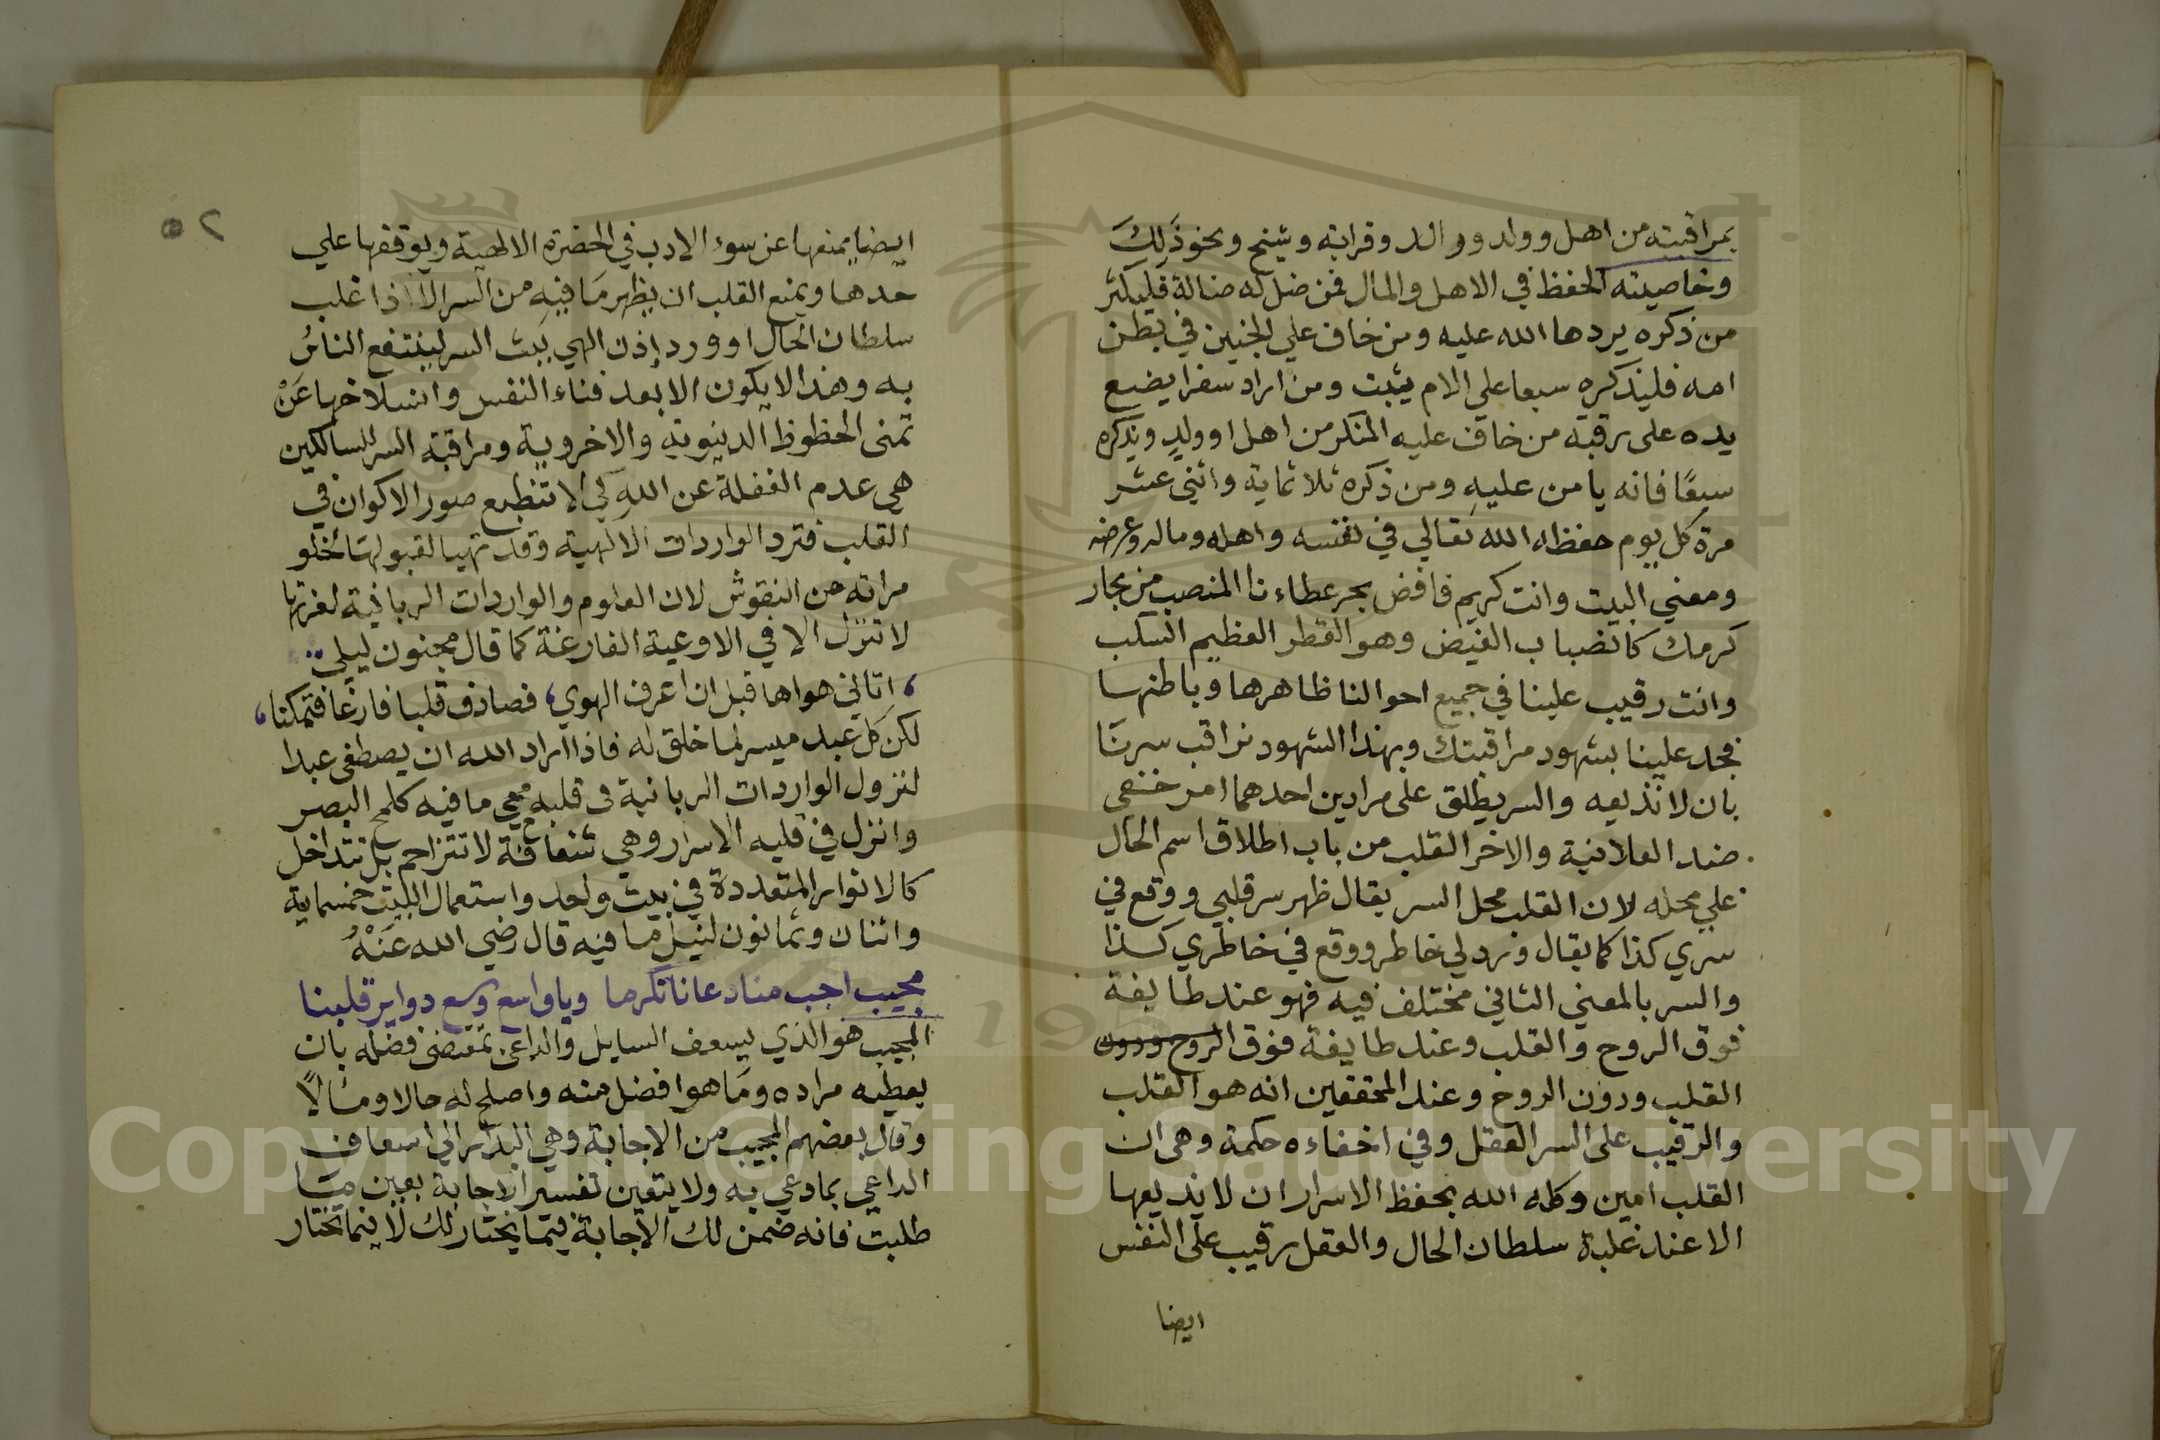 بمراقبته من اهل وولد ووالد وقرابة وشيخ ونحو ذلك
وخاصيته الحفظ في الاهل والمال فمن ضل له ضالة فليكثر
من ذكره يردها الله عليه ومن خاف علي الجنين في بطن
امه فليذكره سبعا على الام يثبت ومن اراد سفرا يضع
يده على رقبة من خاف عليه المنكر من اهل او ولد ويذكره
سبعًا فانه يامن عليه ومن ذكره ثلاثماية واثني عشر
مرة كل يوم حفظه الله تعالي في نفسه واهله وماله وعرضه
ومعني البيت وانت كريم فافض بحر عطاءنا المنصب من بحار
كرمك كانضباب الفيض وهو القطر العظيم السكب
وانت رقيب علينا في جميع احوالنا ظاهرها وباطنها
فجد علينا بشهود مراقبتك وبهذا الشهود نراقب سرنا
بان لا نذيعه والسر يطلق على مرادين احدهما امر خفي
ضد العلانية والاخر القلب من باب اطلاق اسم الحال
علي محله لان القلب محل السر يقال ظهر سر قلبي ووقع في
سري كذا كما يقال ورد لي خاطر ووقع في خاطري كذا
والسر بالمعني الثاني مختلف فيه فهو عند طايفة
فوق الروح والقلب وعند طايفة فوق الروح ودون
القلب ودون الروح وعند المحققين انه هو القلب
والرقيب على السر العقل وفي اخفاءه حكمة وهى ان
القلب امين وكله الله بحفظ الاسرار ان لا يذيعها
الا عند غلبة سلطان الحال والعقل رقيب على النفس
ايضا
٢
ايضا يمنعها عن سوء الادب في الحضرة الالهية ويوقفها علي
حدها ويمنع القلب ان يظهر ما فيه من السر الا اذا غلب
سلطان الحال او ورد إذن الهي ببث السر لينتفع الناسُ
به وهذا لا يكون الا بعد فناء النفس وانسلاخها عَنْ
تمنى الحظوظ الدنيوية والاخروية ومراقبة السر للسالكين
هى عدم الغفلة عن الله كي لا تنطبع صور الاكوان في
القلب فترد الواردات الالهية وقد تهيا لقبولها تخلو
مراته من النقوش لان العلوم والواردات الربانية لغزتها
لا تنزل الا في الاوعية الفارغة كما قال مجنون ليلي
اتاني هواها قبل ان اعرف الهوي، فصادف قلبا فارغا فتمكنا،
لكن كل عبد ميسر لما خلق له فاذا اراد الله ان يصطفى عبدا
لنزول الواردات الربانية في قلبه محي ما فيه كلمح البصر
وانزل في قلبه الاسرار وهي شفافة لا تتزاحم بل تتداخل
كالانوار المتعددة في بيت واحد واستعمال البيت خمسماية
واثنان وثمانون لنيل ما فيه قال رضي الله عَنْهُ
مجيب اجب مناد عانا تكرما وياواسع وسع دواير قلبنا
المجيب هو الذي يسعف السايل والداعى بمقتضى فضله بان
يعطيه مراده وما هو افضل منه واصلح له حالا ومآلًا
وقال بعضهم المجيب من الاجابة وهي البدار الي اسعاف
الداعي بما دعي به ولا يتعين تفسير الاجابة بعين ما
طلبت فانه ضمن لك الاجابة فيما يختار لك لا فيما تختار